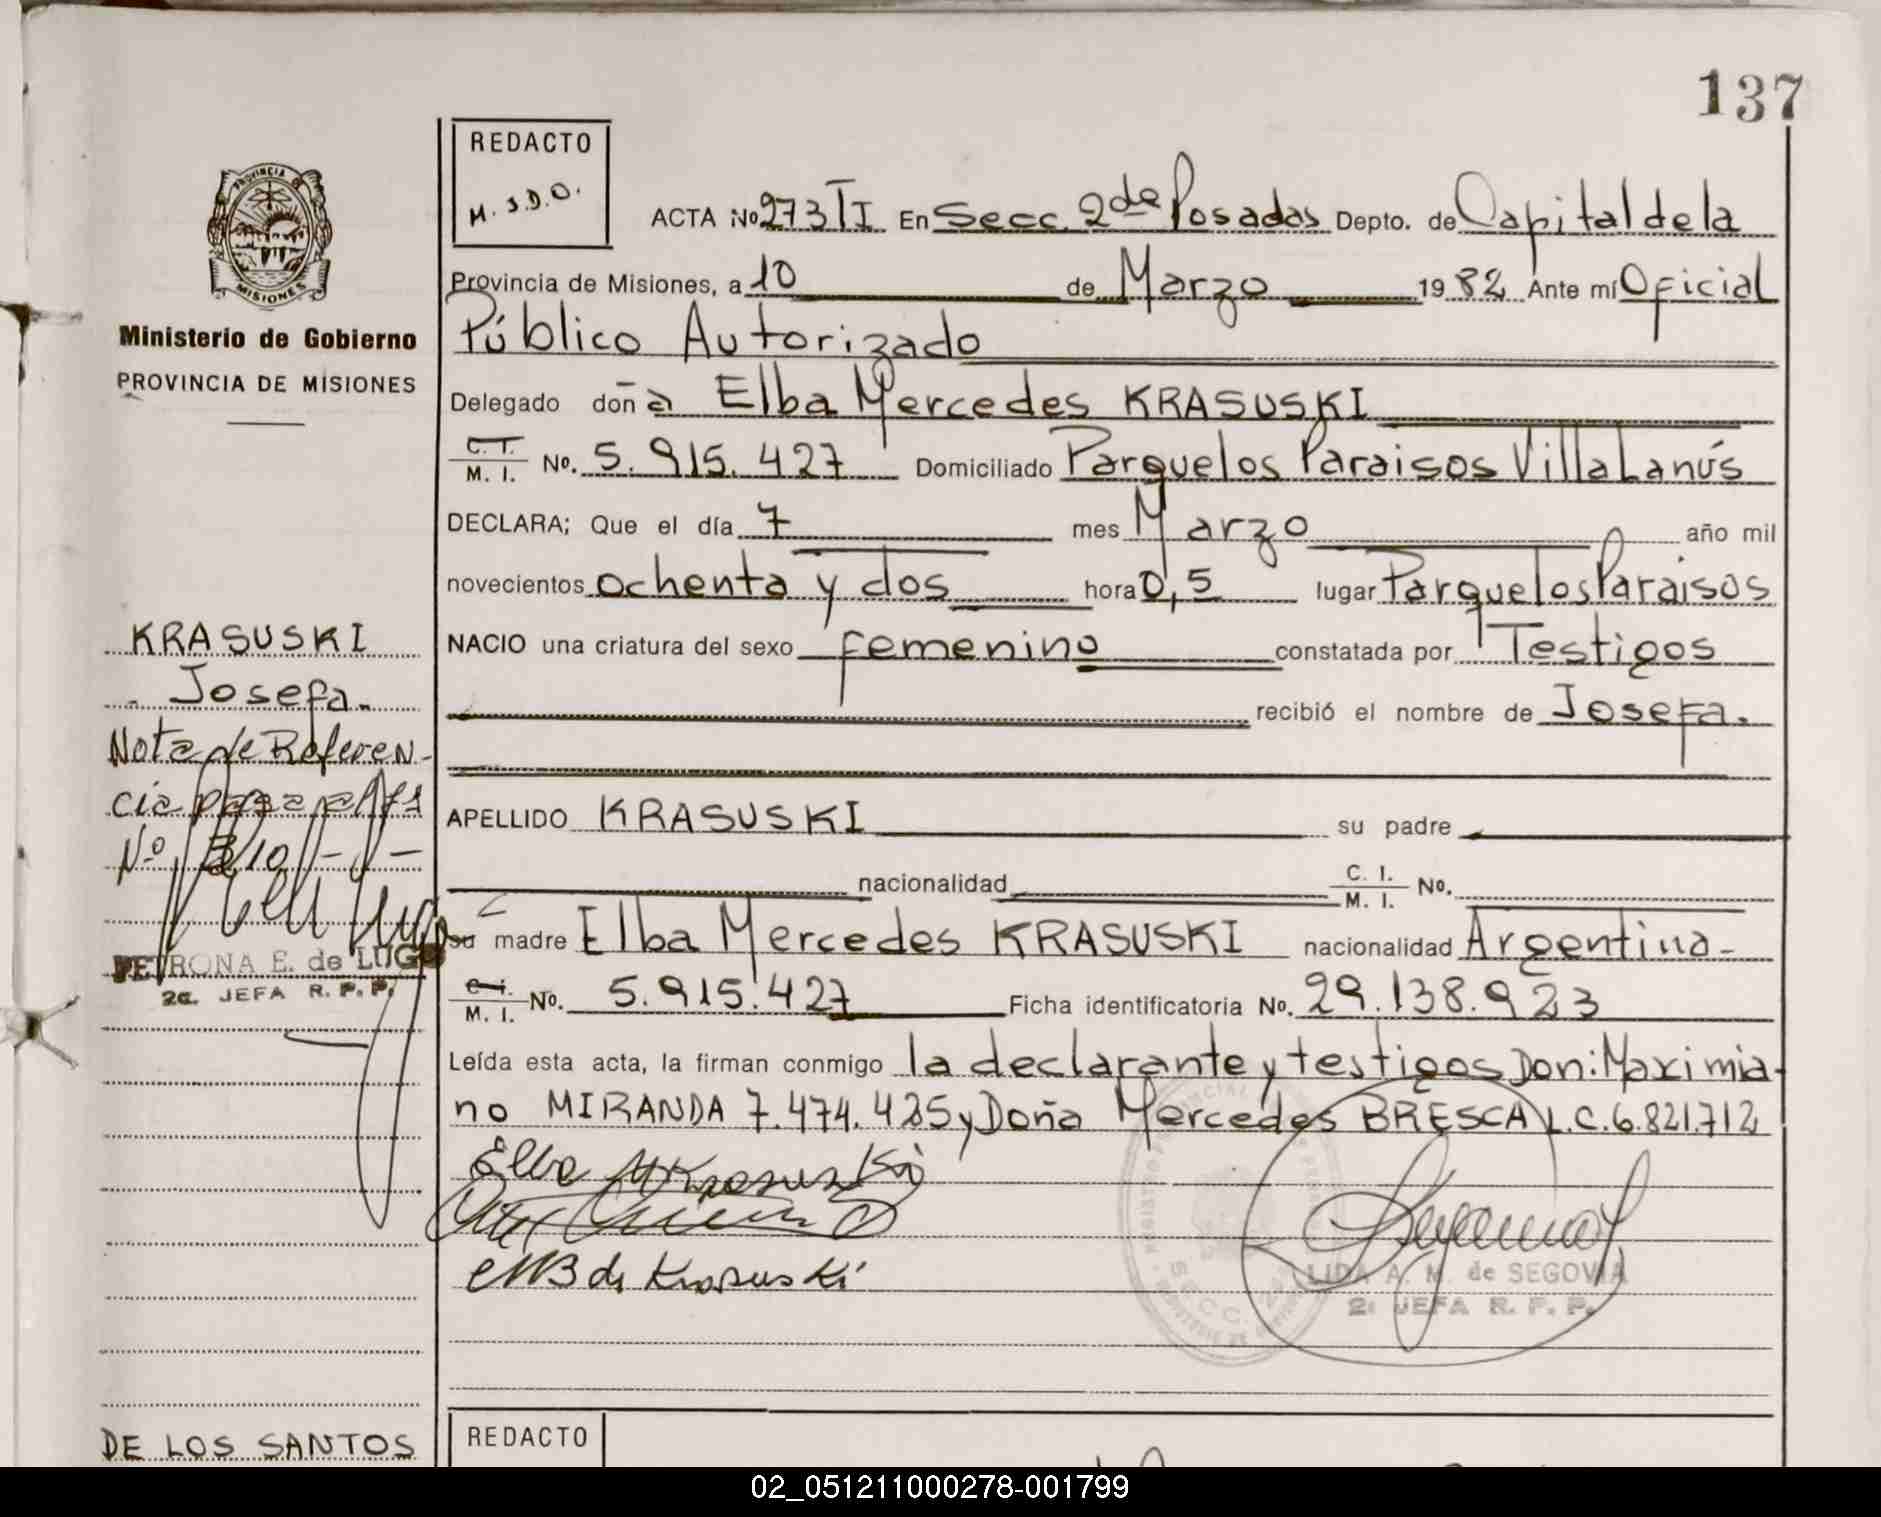 137
REDACTO
M. J. D. O.
ACTA No 273 TI En Secc. 2da Posadas Depto. de Capital de la
Provincia de Misiones, a 10 de Marzo 1982 Ante mí Oficial
Público Autorizado
Delegado doña Elba Mercedes KRASUSKI
C. I. M. I. No. 5.915.427 Domiciliado Parque los Paraisos Villa Lanús
DECLARA; Que el día 7 mes Marzo año mil
novecientos ochenta y dos hora 0,5 lugar Parque los Paraisos
NACIO una criatura del sexo femenino constatada por Testigos
recibió el nombre de Josefa.
APELLIDO KRASUSKI su padre
nacionalidad C. I. M. I. No.
su madre Elba Mercedes KRASUSKI nacionalidad Argentina-
C. I. M. I. No. 5.915.427 Ficha identificatoria No. 29.138.923
Leída esta acta, la firman conmigo la declarante y testigos Don: Maximia-
no MIRANDA 7.474.425 y Doña Mercedes BRESCA L.C. 6.821.712
Elba M Krasuski
MB de Krasuski
LIDA A. M. de SEGOVIA
2a JEFA R. P. P.
PROVINCIA DE
MISIONES
Ministerio de Gobierno
PROVINCIA DE MISIONES
KRASUSKI
Josefa.
Nota de Referen-
cia para
No
PETRONA E. de LUGO
2a. JEFA R. P. P.
DE LOS SANTOS
REDACTO
02_051211000278-001799